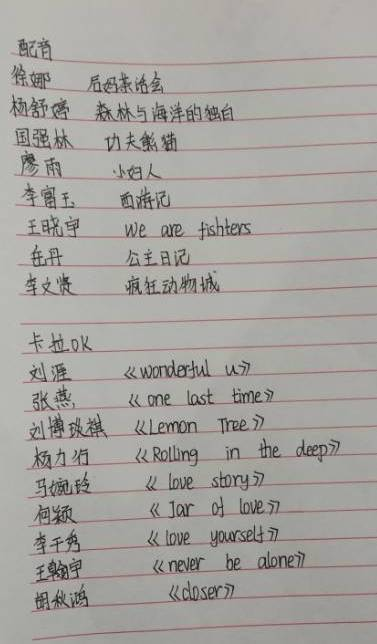 配音
徐娜 后妈茶话会
杨舒婷 森林与海洋的独白
国强林 功夫熊猫
廖雨 小妇人
李富玉 西游记
王晓宇 we are fishters
岳丹 公主日记
李文贤 疯狂动物城
卡拉OK
刘涯 《wonderful u》
张燕 《one last time》
刘博琪祺 《Lemon Tree》
杨力行 《Rolling in the deep》
马婉玲 《love story》
何颖 《Jar of love》
李千秀 《love yourself》
王翰宇 《never be alone》
胡秋鸿 《closer》